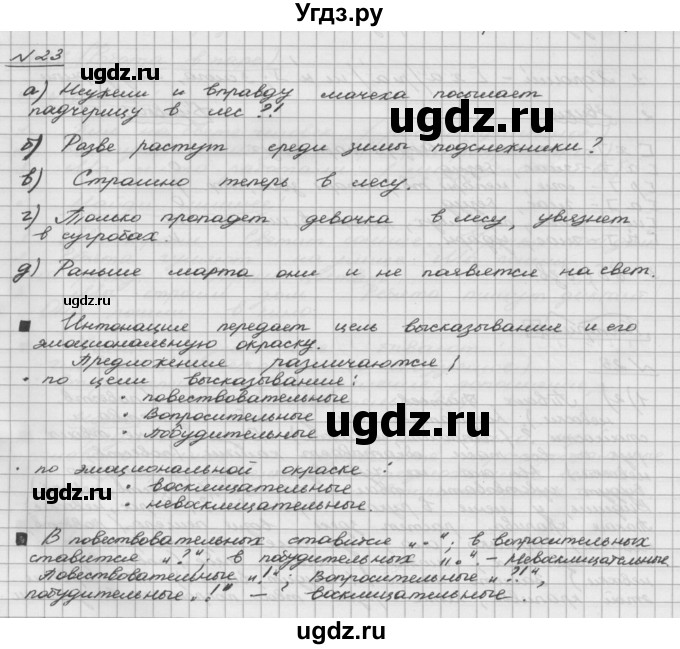 Угдз.ру
№23
а) Неужели и вправду мачеха посылает
падчерицу в лес?!
ugdz.ru
ugdz.ru
б) Разве растут среди зимы подснежники?
в) Страшно теперь в лесу.
ugdz.ru
г) Только пропадет девочка в лесу, увязнет
в сугробах.
ugdz.ru
д) Раньше марта они и не появятся на свет.
ugdz.ru
Интонация передает цель высказывания и его
эмоциональную окраску.
ugdz.ru
Предложения различаются:
• по цели высказывания:
• повествовательные
• Вопросительные
• Побудительные
ugdz.ru
• по эмоциональной окраске:
• восклицательные
• невосклицательные.
ugdz.ru
ugdz.ru
В повествовательных ставится „.“; в вопросительных
ставится „?“; в побудительных „.“ - Невосклицательные
Повествовательные „!“; Вопросительные „?!“,
побудительные „!“ - восклицательные.
ugdz.ru
ugdz.ru